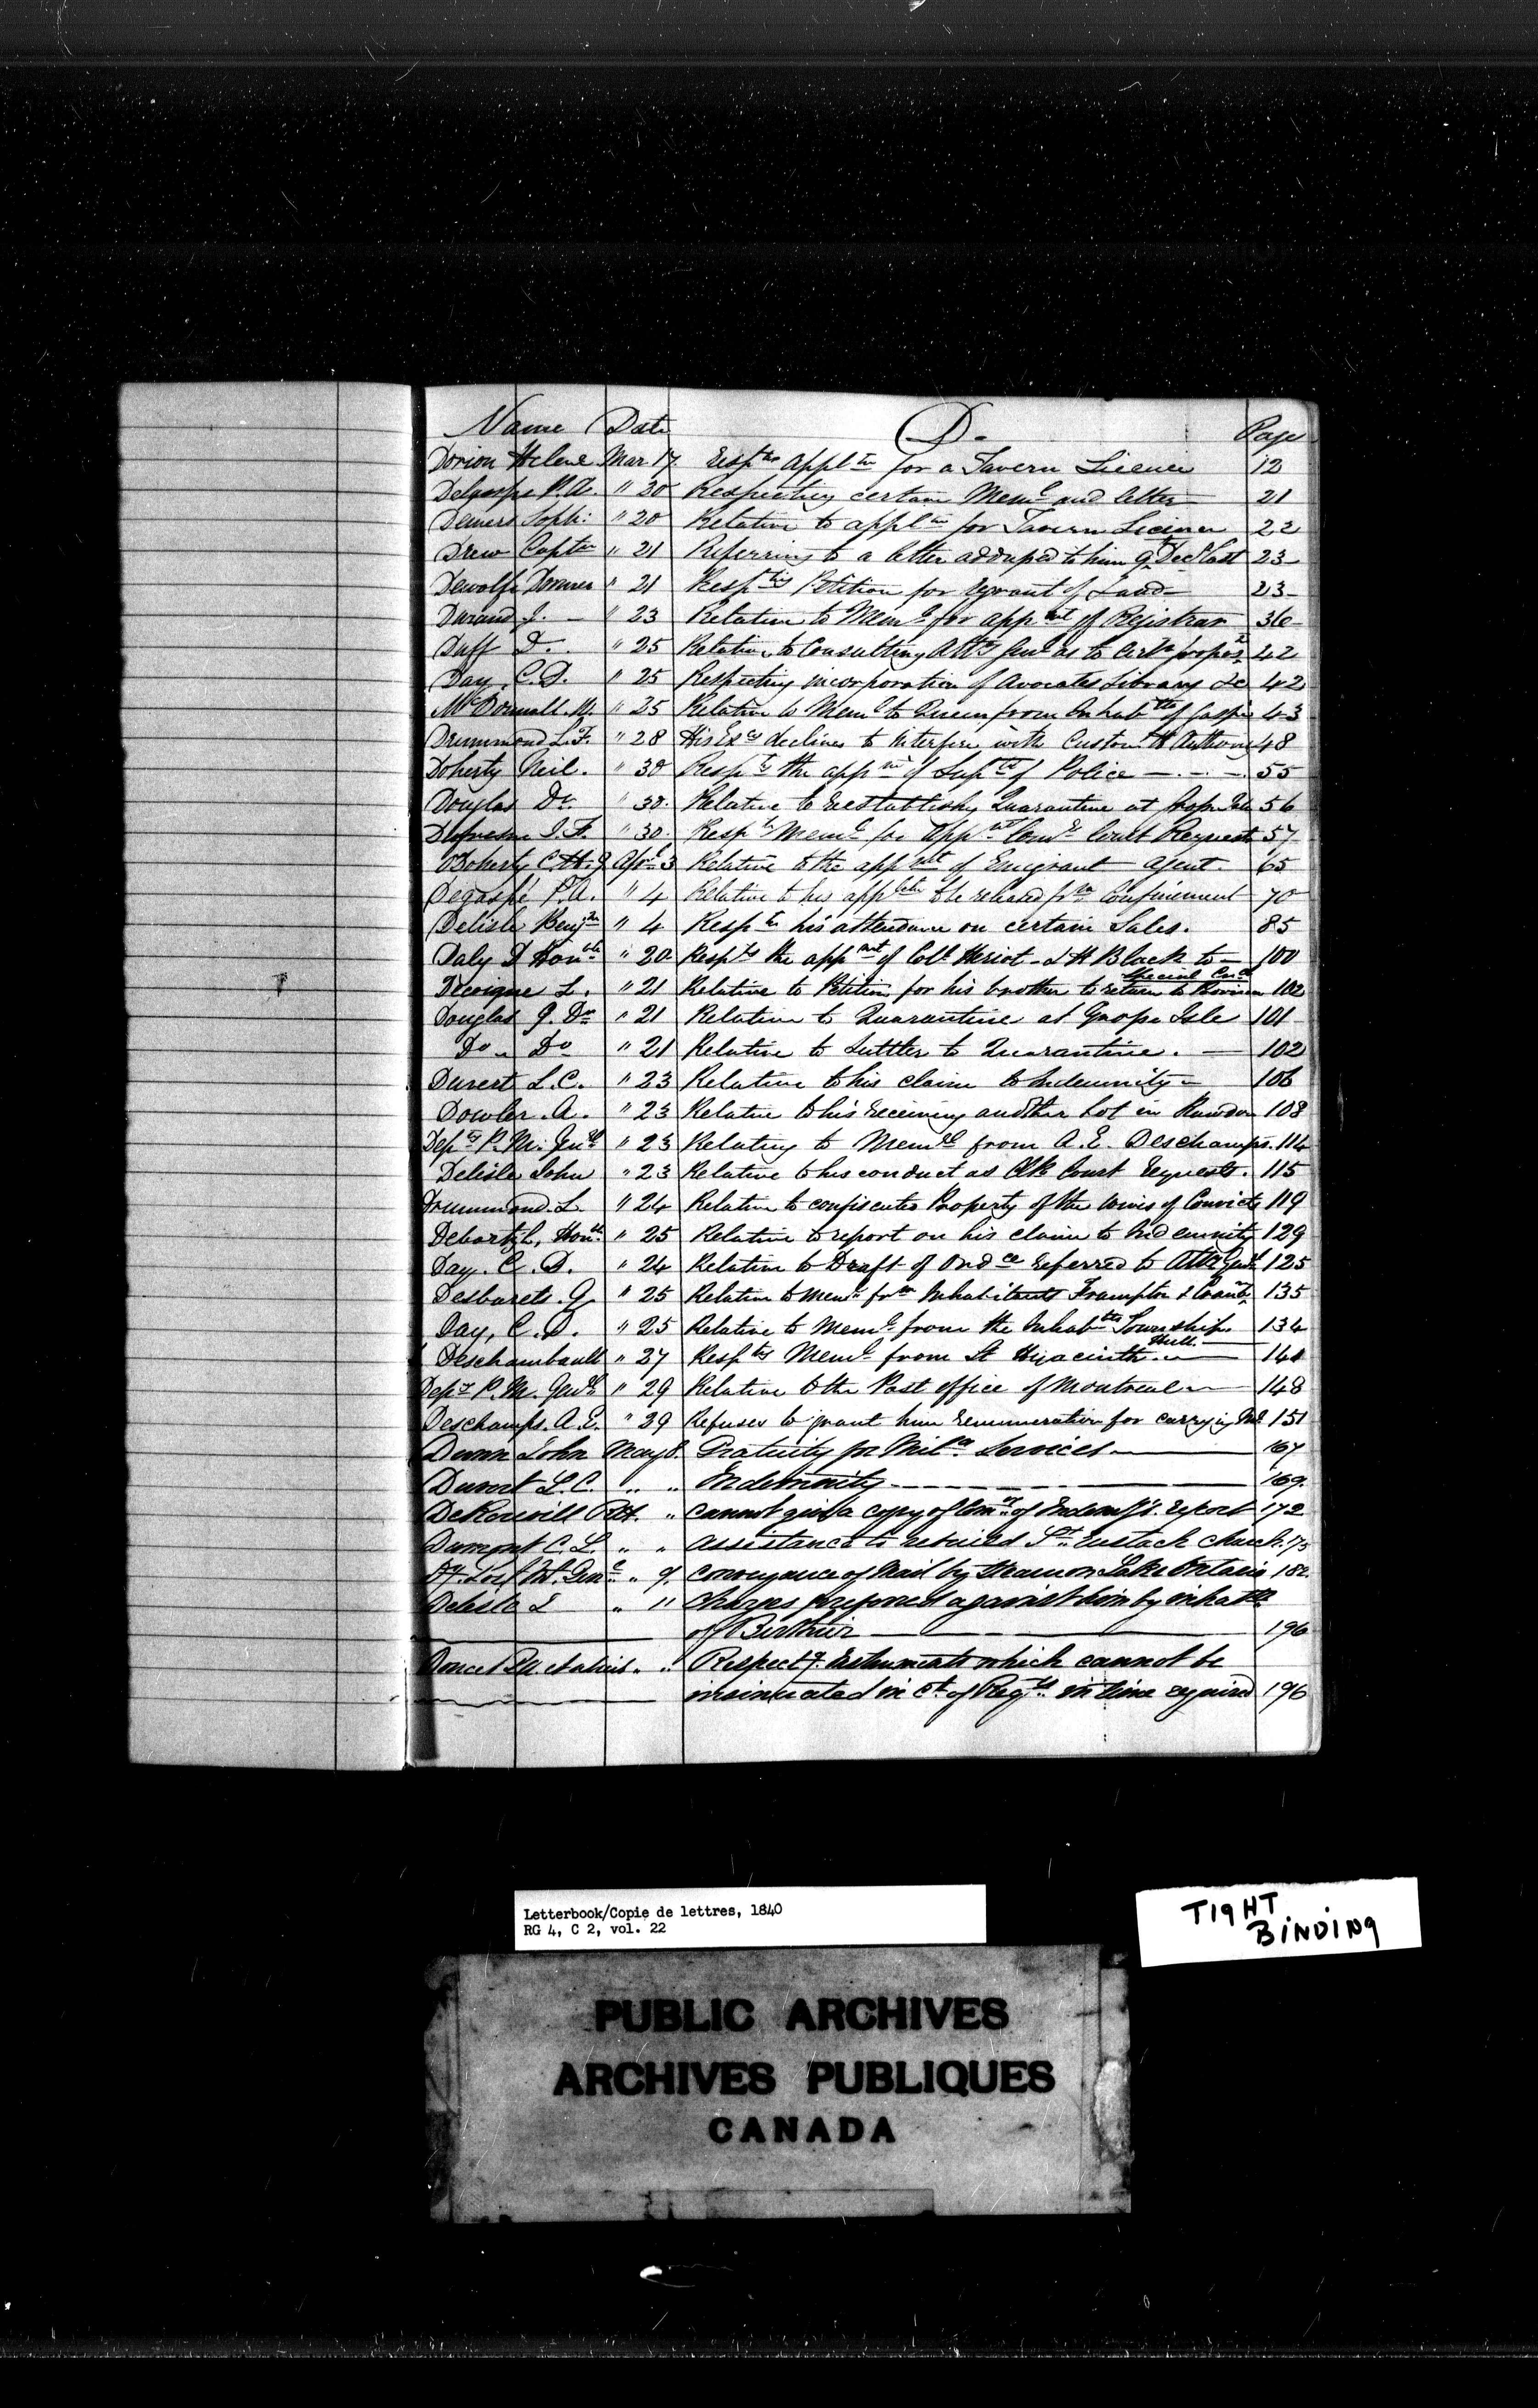 Name Date D. Page
Dorion Helene Mar 17. Resptg appltn for a Tavern Licence 12
Degaspe P. A. " 20 Respecting certain Meml and letter 21
Demers Soph: " 20 Relative to appltn for Tavern Licence 22
Drew Captn " 21 Referring to a letter addressed to him 9 Decr last 23
Dewolfe " 21 Resptg Petition for regrant of Land 23
Durand J. " 23 Relative to Meml for appnt of Registrar 36
Duff D. " 25 Relative to Consulting Atty Genl as to Certn 42
Day, C. D. " 25 Respecting incorporation of Avocates Library &c 42
McDonnall. " 25 Relative to Meml to Queen from Inhabtts of Gaspé 43
Drummond L. T. " 28 His Excy declines to interfere with Custom H Authory 48
Doherty Neil. " 30 Resptg the appnt of Supt of Police 55
Douglas Dr. " 30. Relative to reestablishg Quarantine at Grosse Isle 56
J. F. " 30. Resptg Meml for appnt Comr Court Requests 57
Doherty C. H. J Aprl 3 Relative to the appnt of Emigrant agent. 65
Degaspé P. A. " 4 Relative to his appltn to be released frm Confinement 70
Delisle Benjn " 4 Resptg his attendance on certain Sales. 85
Daly D Honble " 20 Resptg the appnt of Coll Heriot & H Black to Special Cncl 100
Decoigne L. " 21 Relative to Petition for his brother to return to Province 102
Douglas G. Dr " 21 Relative to Quarantine at Grosse Isle 101
Do Do " 21 Relative to Suttler to Quarantine. 102
Duvert L. C. " 23 Relative to his claim to Indemnity 106
Dowler. A. " 23 Relative to his receiving another Lot in Rawdon 108
Depty P. M. Genl " 23 Relating to Meml from A. E. Deschamps. 114
Delisle John " 23 Relative to his conduct as Clk Court Requests. 115
Drummond. L " 24 Relative to confiscated Property of the wives of Convicts 119
Debartzh, Honble " 25 Relative to report on his claim to Indemnity 129
Day. C. D. " 24 Relative to Draft of Ordce referred to Atty Genl 125
Desbarets. G " 25 Relative to Meml frm Inhabitants Frampton & 135
Day, C. D. " 25 Relative to Meml from the Inhabtts Township Hull. 134
Deschambault " 27 Resptg Meml from St Hyacinth. 141
Depy P. M. Genl " 29 Relative to the Post office of Montreal 148
Deschamps. A. E. " 29 Refuses to grant him remuneration for carrying Ml 151
Dunn John May 8. Gratuity for Mila Services 167
Duvert L. C. " " Indemnity 169.
DeRouvill " cannot give a copy of Comn of Indemy's. report 172
Dumont C. L. " " Assistance to rebuild St Eustach church 173
Dy. Post Mr. Genl " 9. Conveyance of Mail by Steam on Lake Ontario 182
Delisle " 11 Charges preferred against him by inhatts
of Berthier 196
Doucet " " Respectg. instruments which cannot be
insinuated in Ct of Regts in time required 196
Letterbook/Copie de lettres, 1840
RG 4, C 2, vol. 22
TIGHT
BINDING
PUBLIC ARCHIVES
ARCHIVES PUBLIQUES
CANADA